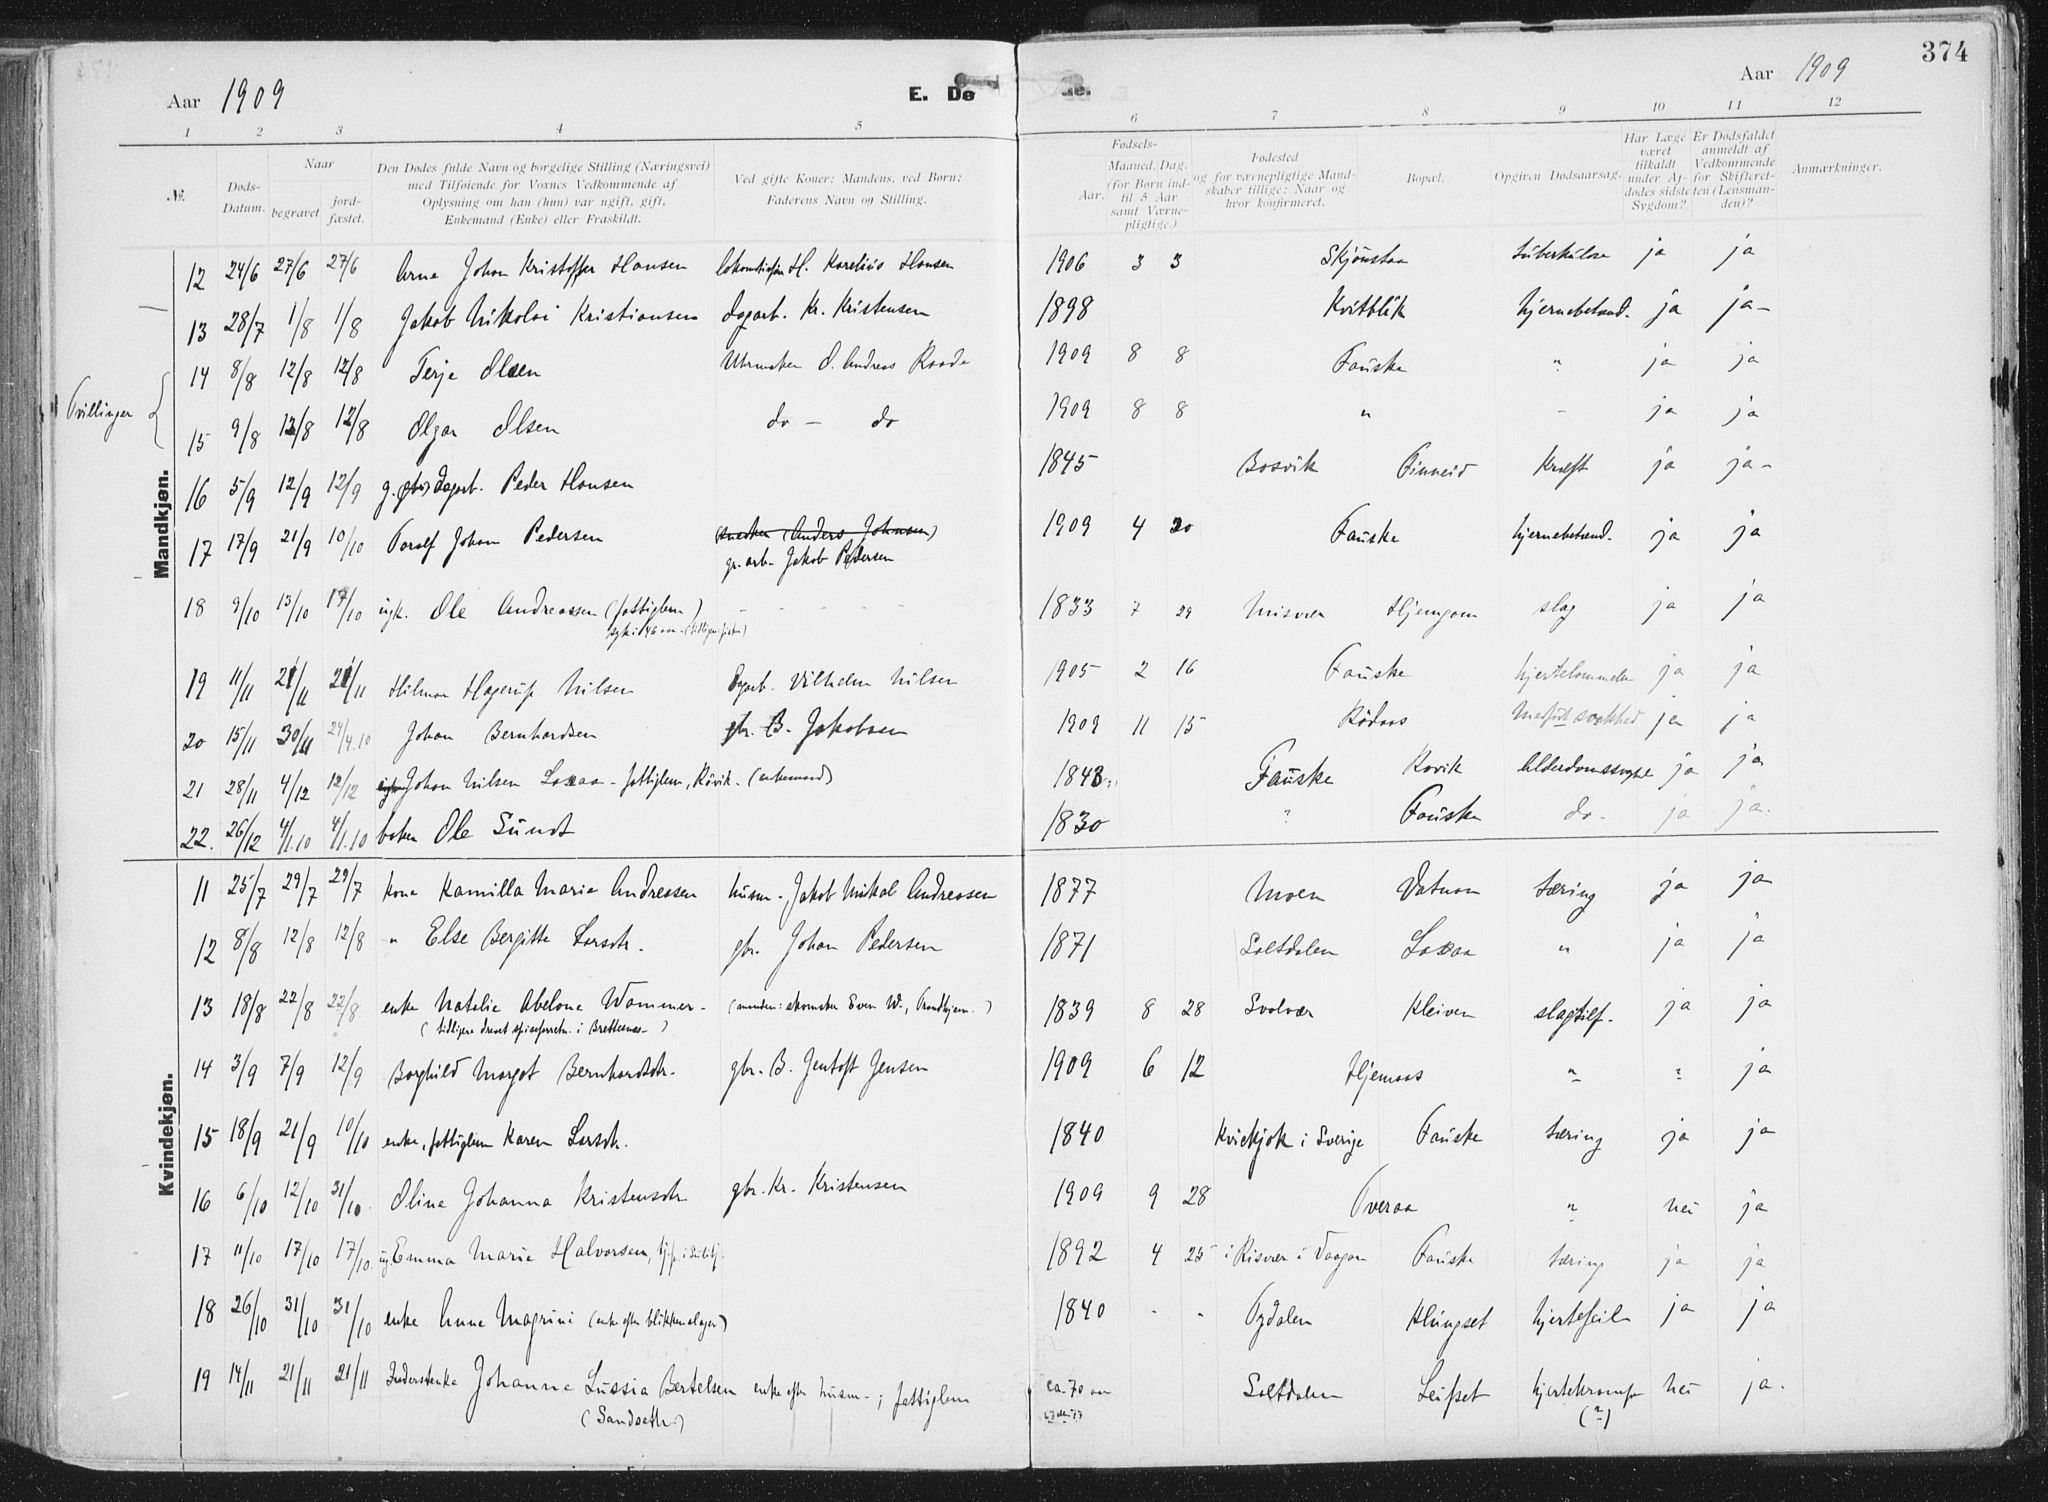 374
Aar 1909
E. Dø
de.
Aar 1909
1 2 3 4 5 6 7 8 9 10 11 12
No.
Døds-Datum.
Naar
begravet
jord-fæstet.
Den Dødes fulde Navn og borgelige Stilling (Næringsvei)
med Tilføiende for Voxnes Vedkommende af
Oplysning om han (hun) var ugift, gift,
Enkemand (Enke) eller Fraskildt.
Ved gifte Koner: Mandens, ved Børn:
Faderens Navn og Stilling.
Fødsels-
Aar.
Maaned. Dag.
(for Børn ind-
til 5 Aar
samt Værne-
pligtige.)
Fødested
og for værnepligtige Mand-
skaber tillige: Naar og
hvor konfirmeret.
Bopæl.
Opgiven Dødsaarsag.
Har Læge
været
tilkaldt
under Af-
dødes sidste
Sygdom?
Er Dødsfaldet
anmeldt af
Vedkommende
for Skifteret-
ten (Lensman-
den)?
Anmærkninger.
Mandkjøn.
12 24/6 27/6 27/6 Arne Johan Kristoffer Hansen H. Karelius Hansen 1906 3 3 Skjönstaa tuberkulose ja ja
13 28/7 1/8 1/8 Jakob Nikolai Kristiansen dagarb. Kr. Kristensen 1898 Kvitblik hjernebetænd. ja ja-
Tvillinger {
14 8/8 12/8 12/8 Terje Olsen Uhrmaker O. Andreas Raade 1909 8 8 Fauske " ja ja
15 9/8 12/8 12/8 Olgar Olsen do - do 1909 8 8 " - ja ja
16 5/9 12/9 12/9 g. dagarb. Peder Hansen 1845 Bosvik Finneid kræft ja ja-
17 17/9 21/9 10/10 Toralf Johan Pedersen (snedker (Anders Johansen) 1909 4 20 Fauske hjernebetænd. ja ja
gr. arb. Jakob Pedersen
18 9/10 13/10 17/10 ugk. Ole Andreassen (fattiglem) 1833 7 29 Misvær Hjemgam slag ja ja
19 11/11 21/11 21/11 Hilmar Hagerup Nilsen Dagarb. Vilhelm Nilsen 1905 2 16 Fauske hjertelammelse ja ja
20 15/11 30/11 24/4.10 Johan Bernhardsen gbr. B. Jakobsen 1909 11 15 Rödaas Medfödt svakhed ja ja
21 28/11 4/12 12/12 Johan Nilsen Laxaa - fattiglem, Rövik. (enkemand) 1843 Fauske Rovik Alderdomssvaghed ja ja
22. 26/12 4/1.10 4/1.10 Ole Sundt 1830 " Fauske do - ja ja.
Kvindekjøn.
11 25/7 29/7 29/7 kone Kamilla Marie Andreasen husm. Jakob Mikal Andreasen 1877 Moen Vatnan tæring ja ja
12 8/8 12/8 12/8 " Else Bergitte Larsdtr. gbr. Johan Pedersen 1871 Saltdalen Laxaa " ja ja
13 18/8 22/8 22/8 enke Natalie Abelone Wammer. (manden: skomaker Even W., Trondhjem.) 1839 8 28 Svolvær Kleiven slagtilf. ja ja
(tidligere drevet spiseforretn. i Brettesnes)
14 3/9 7/9 12/9 Borghild Margot Bernhardsdtr. gbr. B. Gentoft Jensen 1909 6 12 Hjemaas " " ja
15 18/9 21/9 10/10 enke, fattiglem Karen Larsdtr. 1840 Kvickjok i Sverige Fauske tæring ja ja
16 6/10 12/10 31/10. Oline Johanna Kristensdtr. gbr. Kr. Kristensen 1909 9 28 Tveraa " nei ja
17 11/10 17/10 17/10. ug. Emma Marie Halvorsen, 1892 4 25 i Risvær i Vaagan Fauske tæring ja ja
18 26/10 31/10 31/10 enke Anne Magrini (enke efter blikkenslager) 1840 - " Ogdalen Klungset hjertefeil ja ja
19 14/11 21/11 21/11 Inderstenke Johanna Lussia Bertelsen enke efter husm -; fattiglem ca. 70 aar Saltdalen Leifset hjertekrampe nei ja.
(Sandseth.) (?)